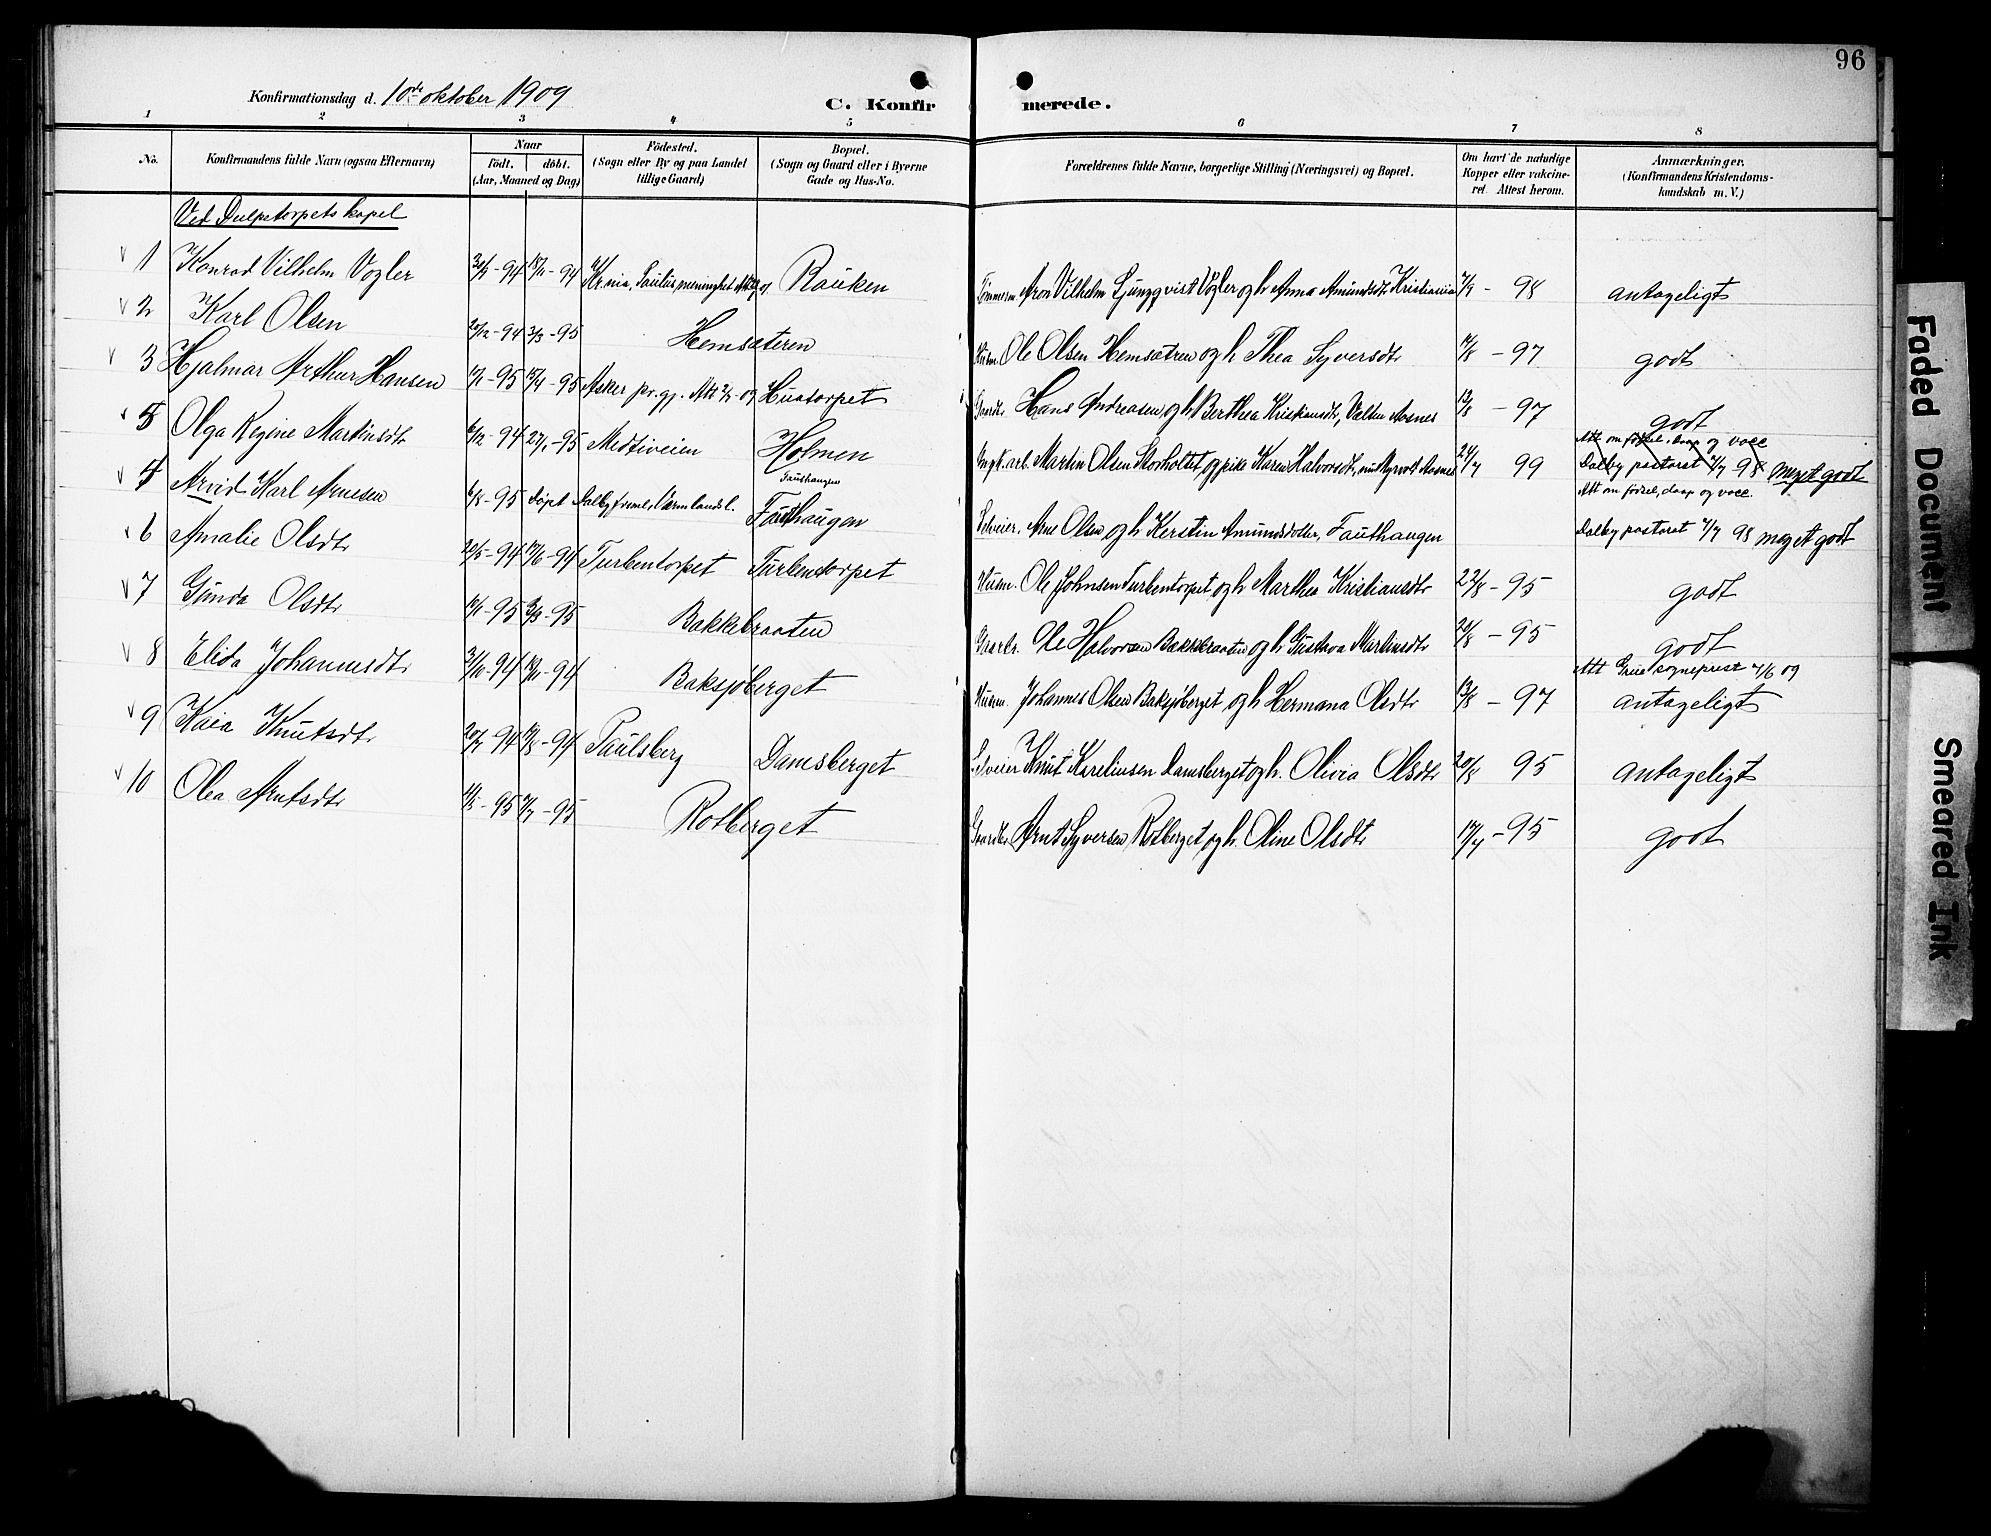 96
Konfirmationsdag d. 10de oktober 1909
C. Konfirmerede.
1 2 3 4 5 6 7 8
No. Konfirmandens fulde Navn (ogsaa Efternavn) Naar födt. döbt. (Aar, Maaned og Dag) Födested. (Sogn eller By og paa Landet tillige Gaard) Bopæl. (Sogn og Gaard eller i Byerne Gade og Hus-No. Forældrenes fulde Navne, borgerlige Stilling (Næringsvei) og Bopæl. Om havt de naturlige Kopper eller vakcineret. Attest herom. Anmærkninger. (Konfirmandens Kristendomskundskab m. V.)
Ved Dulpetorpets kapel
1 Konrad Vilhelm Vogler -94 -94 Rauken Tömmerm. Aron Vilhelm Ljungqvist Vogler og h. Anna Amundsdtr Kristiania - 98 antageligt
2 Karl Olsen 20/12 -94 3/3 -95 Hemsæteren Husm. Ole Olsen Hemsætren og h. Thea Syversdtr - 97 godt
3 Hjalmar Arthur Hansen -95 -95 Asker pr.gj. Huatorpet Gaardbr. Hans Andreasen og h. Berthea Kristiansdtr, Velten Aasnes 13/8 - 97 godt
5 Olga Regine Martinsdtr 6/12 -94 27/1 -95 Medtiveien Holmen arb. Martin Olsen Storholtet, og pike Karen Halvorsdtr, Aasnes 24/7 99 Att om födsel, daap og vacc Dalby pastorat 98 meget godt
4 Arvid Karl Arnesen 6/8 -95 Döpt Dalby Fauthaugen Fauthaugen Selveier. Arne Olsen og h. Kerstin Amundsdotter, Fauthaugen Att om födsel, daap og vacc. Dalby pastorat 98 meget godt
6 Amalie Olsdtr 20/5 -94 17/6 -94 Turbentorpet Turbentorpet Husm. Ole Johnsen Turbentorpet og h. Marthea Kristiansdtr 22/8 - 95 godt
7 Gunda Olsdtr -95 3/3 -95 Bakkebraaten Gaardbr. Ole Halvorsen Bakkebraaten og h. Gustava Martinsdtr 20/8 - 95 godt
8 Elida Johannesdtr 31/10 -94 -94 Baksjöberget Husm. Johannes Olsen Baksjöberget og h. Hermana Olsdtr 13/8 - 97 Att Grue sogneprest 09 antageligt
9 Kaia Knutsdtr 20/7 94 -94 Paulsberg Damsberget Selveier Knut Karelinsen Damsberget og h. Olivia Olsdtr 20/8 95 antageligt
10 Olea Arntsdtr -95 -95 Rotberget Gaardbr. Arnt Syversen Rotberget, og h. Oline Olsdtr -95 godt
Faded Document
Smeared Ink